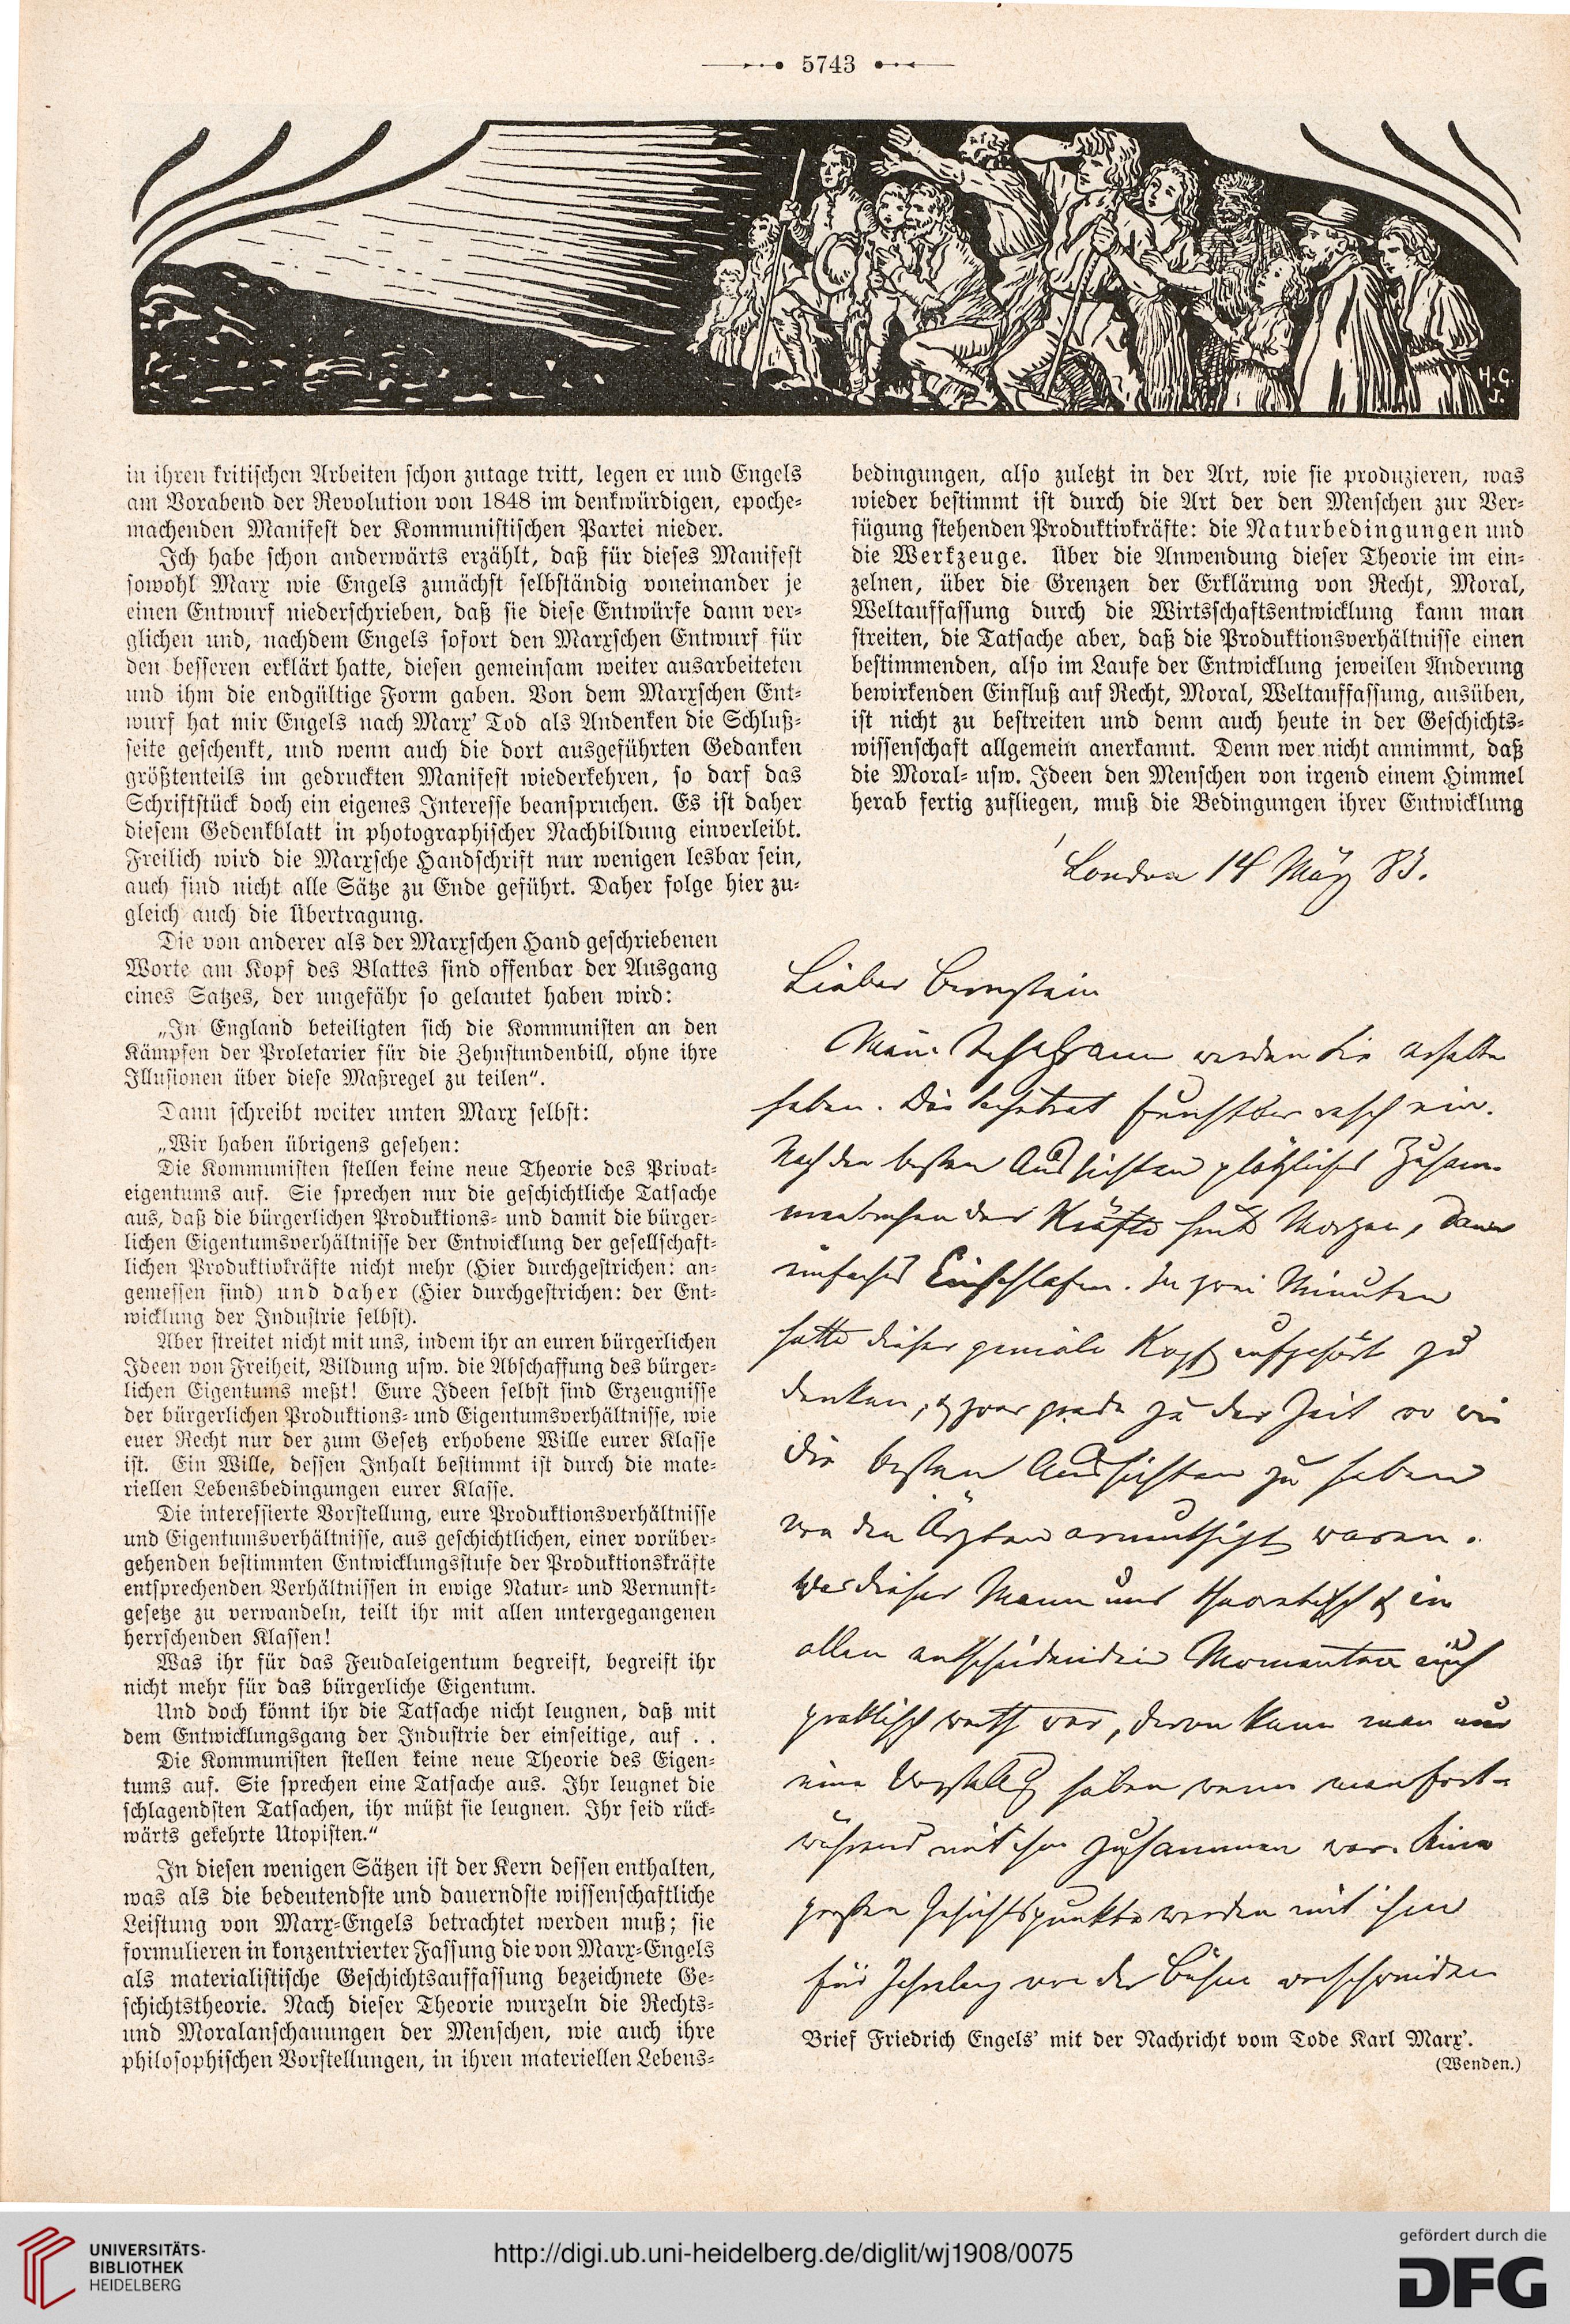 5743
H. G. J.
in ihren kritischen Arbeiten schon zutage tritt, legen er und Engels
am Vorabend der Revolution von 1848 im denkwürdigen, epoche-
machenden Manifest der Kommunistischen Partei nieder.
Ich habe schon anderwärts erzählt, daß für dieses Manifest
sowohl Marx wie Engels zunächst selbständig voneinander je
einen Entwurf niederschrieben, daß sie diese Entwürfe dann ver-
glichen und, nachdem Engels sofort den Marxschen Entwurf für
den besseren erklärt hatte, diesen gemeinsam weiter ausarbeiteten
und ihm die endgültige Form gaben. Von dem Marxschen Ent-
wurf hat mir Engels nach Marx' Tod als Andenken die Schluß-
seite geschenkt, und wenn auch die dort ausgeführten Gedanken
größtenteils im gedruckten Manifest wiederkehren, so darf das
Schriftstück doch ein eigenes Interesse beanspruchen. Es ist daher
diesem Gedenkblatt in photographischer Nachbildung einverleibt.
Freilich wird die Marxsche Handschrift nur wenigen lesbar sein,
auch sind nicht alle Sätze zu Ende geführt. Daher folge hier zu-
gleich auch die Übertragung.
Die von anderer als der Marxschen Hand geschriebenen
Worte am Kopf des Blattes sind offenbar der Ausgang
eines Satzes, der ungefähr so gelautet haben wird:
„In England beteiligten sich die Kommunisten an den
Kämpfen der Proletarier für die Zehnstundenbill, ohne ihre
Illusionen über diese Maßregel zu teilen“.
Dann schreibt weiter unten Marx selbst:
„Wir haben übrigens gesehen:
Die Kommunisten stellen keine neue Theorie des Privat-
eigentums auf. Sie sprechen nur die geschichtliche Tatsache
aus, daß die bürgerlichen Produktions- und damit die bürger-
lichen Eigentumsverhältnisse der Entwicklung der gesellschaft-
lichen Produktivkräfte nicht mehr (Hier durchgestrichen: an-
gemessen sind) und daher (Hier durchgestrichen: der Ent-
wicklung der Industrie selbst).
Aber streitet nicht mit uns, indem ihr an euren bürgerlichen
Ideen von Freiheit, Bildung usw. die Abschaffung des bürger-
lichen Eigentums meßt! Eure Ideen selbst sind Erzeugnisse
der bürgerlichen Produktions- und Eigentumsverhältnisse, wie
euer Recht nur der zum Gesetz erhobene Wille eurer Klasse
ist. Ein Wille, dessen Inhalt bestimmt ist durch die mate-
riellen Lebensbedingungen eurer Klasse.
Die interessierte Vorstellung, eure Produktionsverhältnisse
und Eigentumsverhältnisse, aus geschichtlichen, einer vorüber-
gehenden bestimmten Entwicklungsstufe der Produktionskräfte
entsprechenden Verhältnissen in ewige Natur- und Vernunft-
gesetze zu verwandeln, teilt ihr mit allen untergegangenen
herrschenden Klassen!
Was ihr für das Feudaleigentum begreift, begreift ihr
nicht mehr für das bürgerliche Eigentum.
Und doch könnt ihr die Tatsache nicht leugnen, daß mit
dem Entwicklungsgang der Industrie der einseitige, auf . .
Die Kommunisten stellen keine neue Theorie des Eigen-
tums auf. Sie sprechen eine Tatsache aus. Ihr leugnet die
schlagendsten Tatsachen, ihr müßt sie leugnen. Ihr seid rück-
wärts gekehrte Utopisten.“
In diesen wenigen Sätzen ist der Kern dessen enthalten,
was als die bedeutendste und dauerndste wissenschaftliche
Leistung von Marx-Engels betrachtet werden muß; sie
formulieren in konzentrierter Fassung die von Marx-Engels
als materialistische Geschichtsauffassung bezeichnete Ge-
schichtstheorie. Nach dieser Theorie wurzeln die Rechts-
und Moralanschauungen der Menschen, wie auch ihre
philosophischen Vorstellungen, in ihren materiellen Lebens-
bedingungen, also zuletzt in der Art, wie sie produzieren, was
wieder bestimmt ist durch die Art der den Menschen zur Ver-
fügung stehenden Produktivkräfte: die Naturbedingungen und
die Werkzeuge. Über die Anwendung dieser Theorie im ein-
zelnen, über die Grenzen der Erklärung von Recht, Moral,
Weltauffassung durch die Wirtsschaftsentwicklung kann man
streiten, die Tatsache aber, daß die Produktionsverhältnisse einen
bestimmenden, also im Laufe der Entwicklung jeweilen Änderung
bewirkenden Einfluß auf Recht, Moral, Weltauffassung, ausüben,
ist nicht zu bestreiten und denn auch heute in der Geschichts-
wissenschaft allgemein anerkannt. Denn wer nicht annimmt, daß
die Moral- usw. Ideen den Menschen von irgend einem Himmel
herab fertig zufliegen, muß die Bedingungen ihrer Entwicklung
London 14 März 83.
Lieber Bernstein
Mein Telegramm werden Sie erhalten
haben. Die Sache trat furchtbar rasch ein.
Nach den besten Aussichten plötzliches Zusam-
menbrechen der Kräfte heute Morgen, dann
einfaches Einschlafen. In zwei Minuten
hatte dieser geniale Kopf aufgehört zu
denken, & zwar grade zu der Zeit wo wir
die besten Aussichten zu haben
von den Ärzten ermuthigt waren.
Was dieser Mann uns theoretisch & in
allen entscheidenden Momenten auch
praktisch werth war, davon kann man nur
eine Vorstellg haben wenn man fort-
während mit ihm zusammen war. Seine
großen Gesichtspunkte werden mit ihm
für Jahrelang von der Bühne verschwinden
Brief Friedrich Engels' mit der Nachricht vom Tode Karl Marx'.
(Wenden.)
UNIVERSITÄTS-
BIBLIOTHEK
HEIDELBERG
http://digi.ub.uni-heidelberg.de/diglit/wj1908/0075
gefördert durch die
DFG